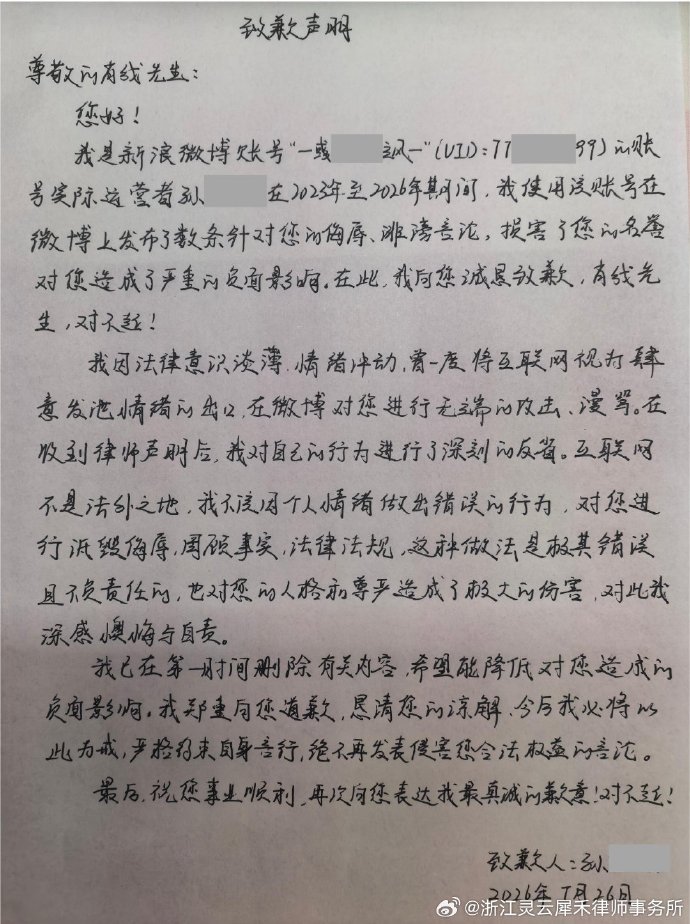 致歉声明
尊敬的有线先生：
您好！
我是新浪微博账号“一或 立飒一”(UID：77 99)的账
号实际运营者孙 在2023年至2026年期间，我使用该账号在
微博上发布了数条针对您的侮辱、诽谤言论，损害了您的名誉
对您造成了严重的负面影响。在此，我向您诚恳致歉，有线先
生，对不起！
我因法律意识淡薄、情绪冲动，曾一度将互联网视为肆
意发泄情绪的出口，在微博对您进行无端的攻击、漫骂。在
收到律师声明后，我对自己的行为进行了深刻的反省。互联网
不是法外之地，我不该因个人情绪做出错误的行为，对您进
行诋毁侮辱，罔顾事实，法律法规，这种做法是极其错误
且不负责任的，也对您的人格和尊严造成了极大的伤害，对此我
深感懊悔与自责。
我已在第一时间删除有关内容，希望能降低对您造成的
负面影响。我郑重向您道歉，恳请您的谅解，今后我必将以
此为戒，严格约束自身言行，绝不再发表侵害您合法权益的言论。
最后，祝您事业顺利，再次向您表达我最真诚的歉意！对不起！
致歉人：孙
2026年 月26日
@浙江灵云犀禾律师事务所